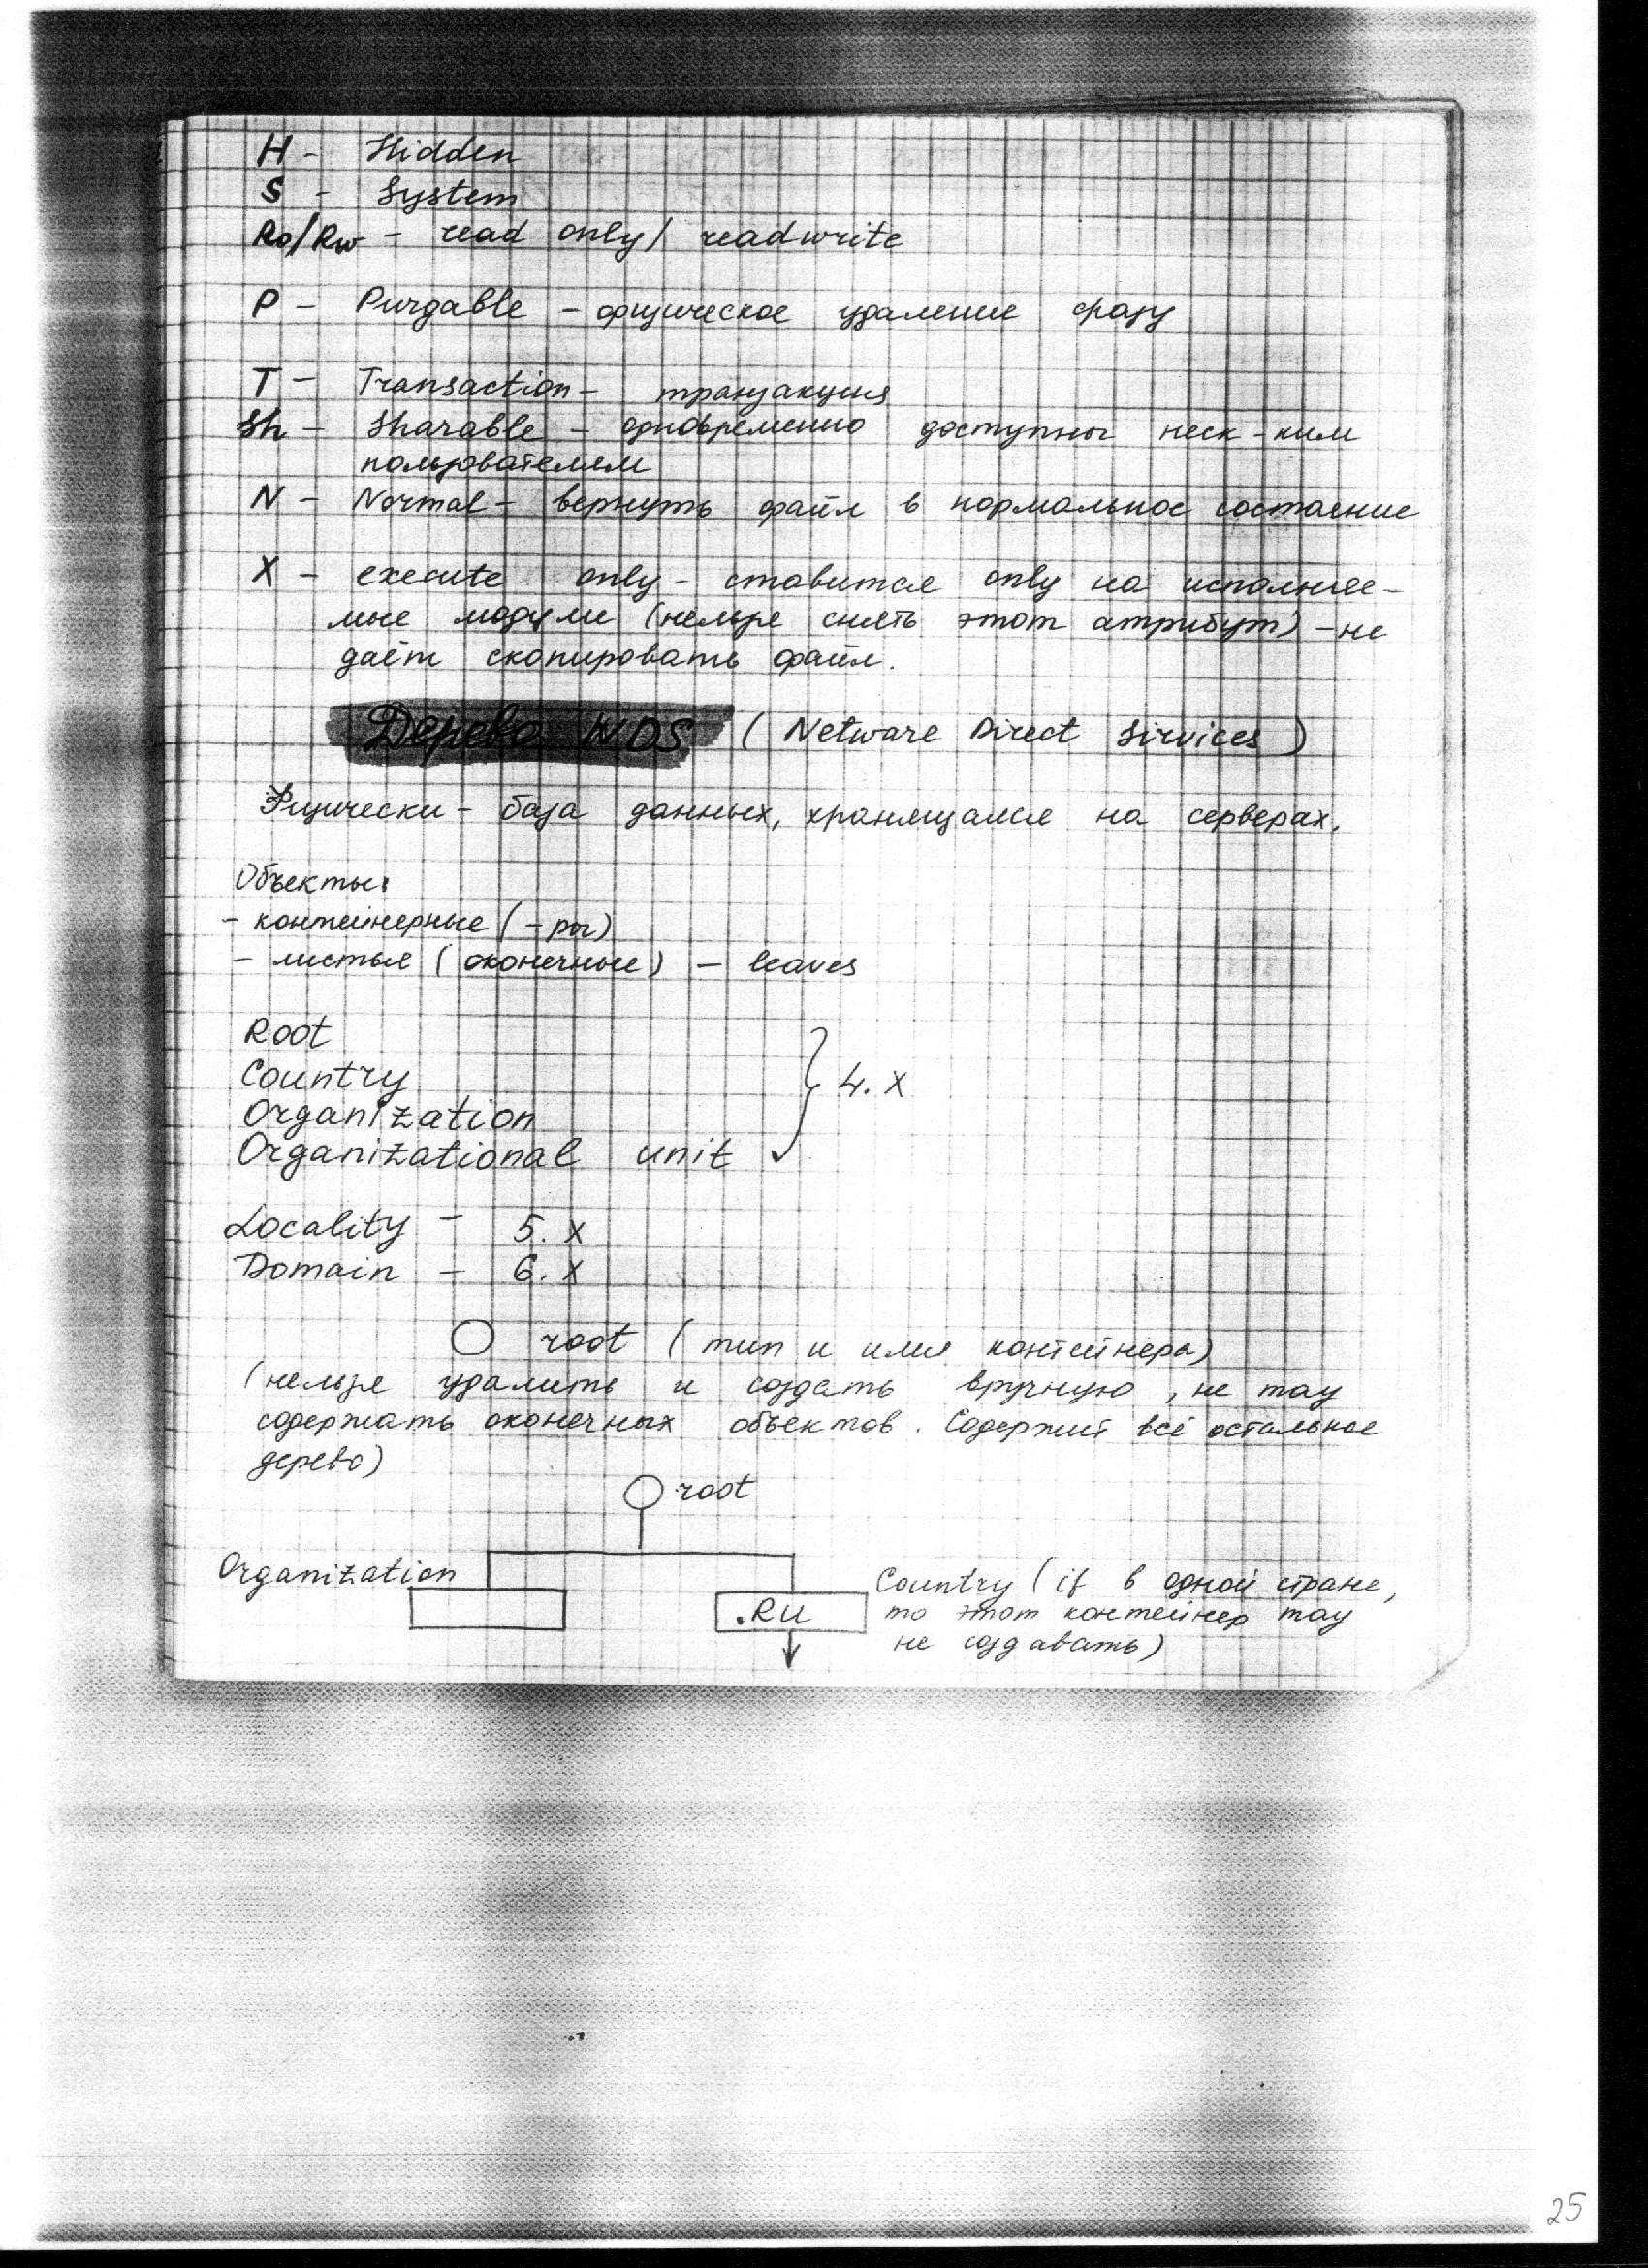 H - Hidden
S - System
Ro/Rw - read only/ readwrite
P - Purgable - физическое удаление сразу
T - Transaction - транзакция
Sh - Sharable - одновременно доступны неск-ким
пользователям
N - Normal - вернуть файл в нормальное состояние
X - execute only - ставится only на исполняе-
мые модули (нельзя снять этот атрибут) - не
даёт скопировать файл.
Дерево NDS (Netware Direct Sirvices)
Физически - база данных, хранящаяся на серверах.
Объекты:
- контейнерные (-ры)
- листья (оконечные) - leaves
Root
Country
Organization
Organizational unit
4.x
Locality - 5.x
Domain - 6.x
root (тип и имя контейнера)
(нельзя удалить и создать вручную, не may
содержать оконечных объектов. Содержит всё остальное
дерево)
root
Organization
.RU
Country (if в одной стране,
то этот контейнер may
не создавать)
25